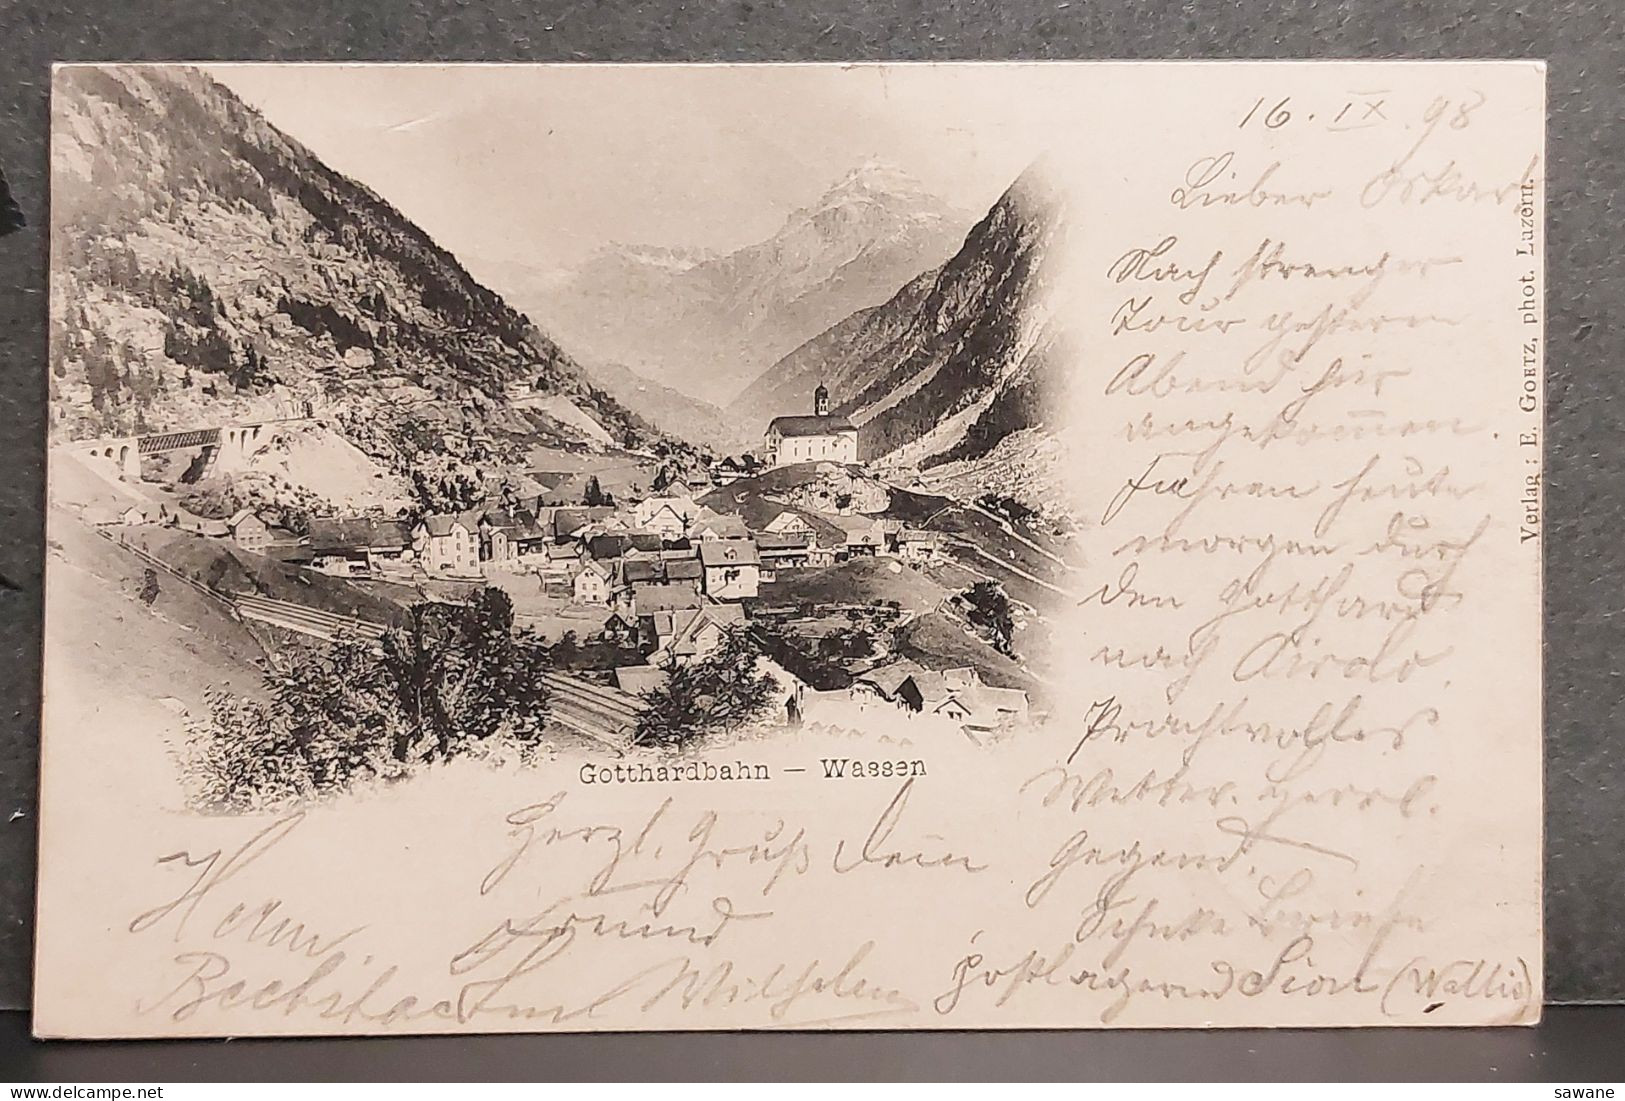 16. IX. 98
Lieber Oskar!
Nach strenger
Tour gestern
Abend hier
angekommen.
Fahren heute
morgen durch
den Gotthard
nach Airolo.
Prachtvolles
Wetter. Herrl.
Gegend.
Schicke Briefe
postlagernd Sion (Wallis)
Herzl. Gruß Dein
Freund
Wilhelm
Gotthardbahn – Wassen
Verlag: E. GOETZ, phot. Luzern.
sawane